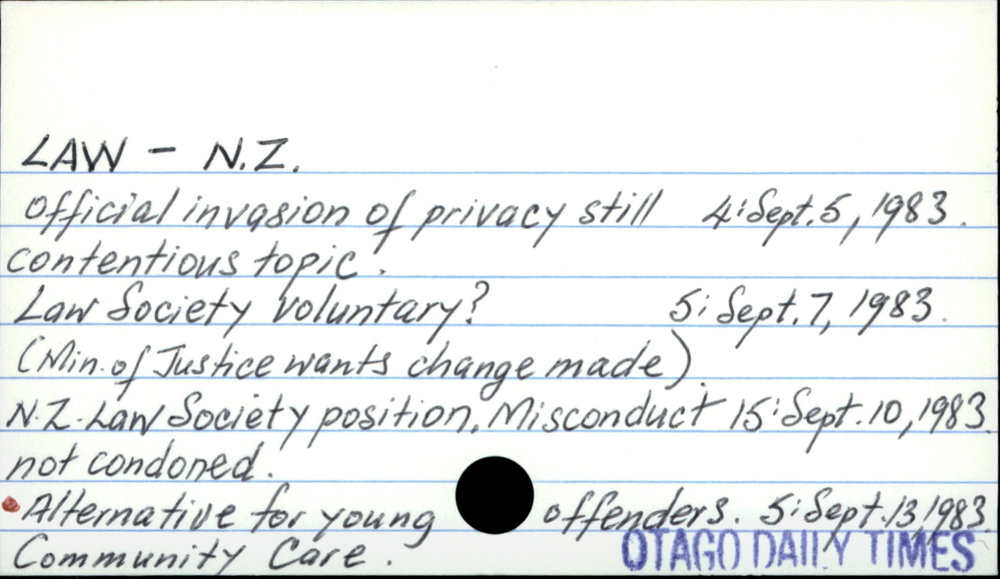 LAW - N.Z.
Official invasion of privacy still 4: Sept. 5, 1983.
contentious topic.
Law Society voluntary? 5: Sept. 7, 1983.
(Min. of Justice wants change made).
N.Z. Law Society position. Misconduct 15: Sept. 10, 1983.
not condoned.
Alternative for young offenders. 5: Sept. 13, 1983.
Community Care.
OTAGO DAILY TIMES